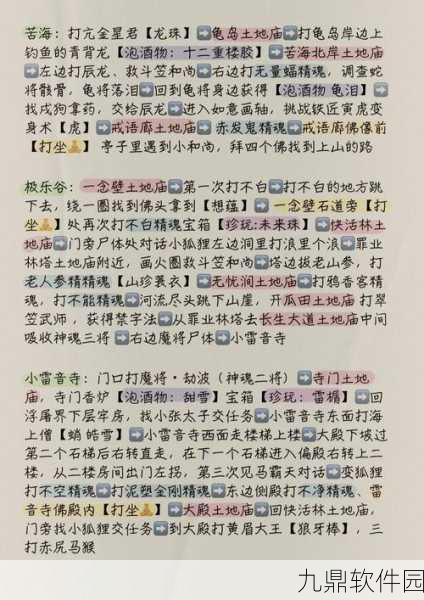 苦海：打亢金星君【龙珠】➡龟岛土地庙➡打龟岛岸边上
钓鱼的青背龙【泡酒物：十二重楼胶】➡苦海北岸土地庙
➡左边打辰龙、救斗笠和尚➡右边打无量蝠精魂，调查蛇
将骸骨，龟将落泪➡回到龟将身边获得【泡酒物 龟泪】➡
找戌狗拿药，交给辰龙➡进入如意画轴，挑战铁匠寅虎变
身术【虎】➡戒语廊土地庙➡赤发鬼精魂➡戒语廊佛像前
【打坐🧘】亭子里遇到小和尚，拜四个佛找到上山的路
极乐谷：一念壁土地庙➡第一次打不白➡打不白的地方跳
下去，绕一圈找到佛头拿到【想蕴】➡一念壁石道旁【打
坐🧘】处再次打不白精魂宝箱【珍玩：未来珠】➡快活林土
地庙➡门旁尸体处对话小狐狸左边洞里打浪里个浪➡罪业
林塔土地庙附近，画火圈救斗笠和尚➡塔边拔老山参，打
老人参精精魂【山珍蓑衣】➡无忧涧土地庙➡打鸦香客精
魂，打不能精魂➡河流尽头跳下山崖，开瓜田土地庙 打翠
笠武师，获得禁字法➡从罪业林塔去长生大道土地庙中间
吸收神魂三将➡右边魔将尸体➡小雷音寺
小雷音寺：门口打魔将·劫波（神魂二将）➡寺门土地
庙，寺门香炉【泡酒物：甜雪】宝箱【珍玩：雷榍】➡回
浮屠界下层牢房，找小张太子交任务➡小雷音寺东面打海
上僧【蛸 皓雪】➡小雷音寺西面走楼梯上楼➡大殿下坡过
第二个石梯后右转直走，在下一个石梯进入偏殿右转上二
楼，从二楼房间出门左拐，第三次见马霸天对话➡变狐狸
打不空精魂➡打泥塑金刚精魂➡东边侧殿打不净精魂、雷
音寺佛殿内【打坐🧘】➡大殿土地庙➡回快活林土地庙，
门旁找小狐狸交任务➡到大殿打黄眉大王【狼牙棒】，三
打赤尻马猴
九鼎软件园